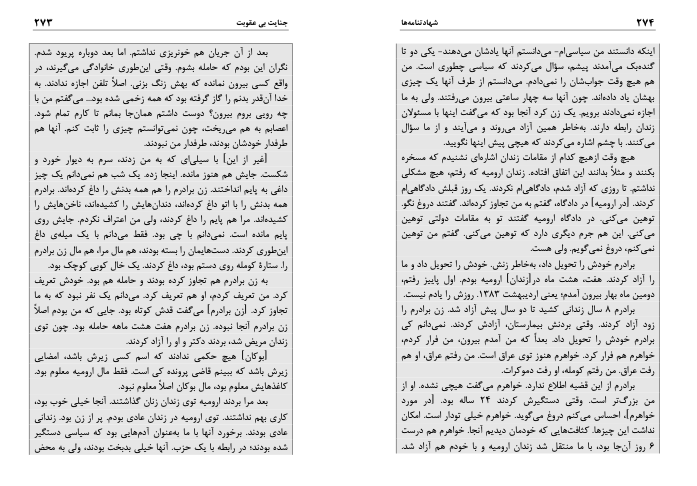 جنایت بی عقوبت ۲۷۳
بعد از آن جریان هم خونریزی نداشتم. اما بعد دوباره پریود شدم.
نگران این بودم که حامله بشوم. وقتی این‌طوری خانوادگی می‌گیرند، در
واقع کسی بیرون نمانده که بهش زنگ بزنی. اصلاً تلفن اجازه ندادند. به
خدا آن‌قدر بدنم را گاز گرفته بود که همه زخمی شده بود... می‌گفتم من با
چه رویی بروم بیرون؟ دوست داشتم همان‌جا بمانم تا کارم تمام شود.
اعصابم به هم می‌ریخت، چون نمی‌توانستم چیزی را ثابت کنم. آنها هم
طرفدار خودشان بودند، طرفدار من نبودند.
[غیر از این] با سیلی‌ای که به من زدند، سرم به دیوار خورد و
شکست. جایش هم هنوز مانده. اینجا زده. یک شب هم نمی‌دانم یک چیز
داغی به پایم انداختند. زن برادرم را هم همه بدنش را داغ کرده‌اند. برادرم
همه بدنش را با اتو داغ کرده‌اند، دندان‌هایش را کشیده‌اند، ناخن‌هایش را
کشیده‌اند. مرا هم پایم را داغ کردند، ولی من اعتراف نکردم. جایش روی
پایم مانده است. نمی‌دانم با چی بود. فقط می‌دانم با یک میله‌ی داغ
این‌طوری کردند. دست‌هایمان را بسته بودند، هم مال مرا، هم مال زن برادرم
را. ستارهٔ کومله روی دستم بود، داغ کردند. یک خال کوبی کوچک بود.
به زن برادرم هم تجاوز کرده بودند و حامله هم بود. خودش تعریف
کرد. من تعریف کردم، او هم تعریف کرد. می‌دانم یک نفر نبود که به ما
تجاوز کرد. [زن برادرم] می‌گفت قدش کوتاه بود. جایی که من بودم اصلاً
زن برادرم آنجا نبوده. زن برادرم هفت هشت ماهه حامله بود. چون توی
زندان مریض شد، بردند دکتر و او را آزاد کردند.
[بوکان] هیچ حکمی ندادند که اسم کسی زیرش باشد، امضایی
زیرش باشد که ببینم قاضی پرونده کی است. فقط مال ارومیه معلوم بود.
کاغذهایش معلوم بود، مال بوکان اصلاً معلوم نبود.
بعد مرا بردند ارومیه توی زندان زنان گذاشتند. آنجا خیلی خوب بود،
کاری بهم نداشتند. توی ارومیه در زندان عادی بودم. پر از زن بود. زندانی
عادی بودند. برخورد آنها با ما به‌عنوان آدم‌هایی بود که سیاسی دستگیر
شده بودند؛ در رابطه با یک حزب. آنها خیلی بدبخت بودند، ولی به محض
۲۷۴ شهادتنامه‌ها
اینکه دانستند من سیاسی‌ام- می‌دانستم آنها یادشان می‌دهند- یکی دو تا
گنده‌بک می‌آمدند پیشم، سؤال می‌کردند که سیاسی چطوری است. من
هم هیچ وقت جواب‌شان را نمی‌دادم. می‌دانستم از طرف آنها یک چیزی
بهشان یاد داده‌اند. چون آنها سه چهار ساعتی بیرون می‌رفتند. ولی به ما
اجازه نمی‌دادند برویم. یک زن کرد آنجا بود که می‌گفت اینها با مسئولان
زندان رابطه دارند. به‌خاطر همین آزاد می‌روند و می‌آیند و از ما سؤال
می‌کنند. با چشم اشاره می‌کردند که هیچی پیش اینها نگویید.
هیچ وقت ازهیچ کدام از مقامات زندان اشاره‌ای نشنیدم که مسخره
بکنند و مثلاً بدانند این اتفاق افتاده. زندان ارومیه که رفتم، هیچ مشکلی
نداشتم. تا روزی که آزاد شدم، دادگاهی‌ام نکردند. یک روز قبلش دادگاهی‌ام
کردند. [در ارومیه] در دادگاه، گفتم به من تجاوز کرده‌اند. گفتند دروغ نگو.
توهین می‌کنی. در دادگاه ارومیه گفتند تو به مقامات دولتی توهین
می‌کنی. این هم جرم دیگری دارد که توهین می‌کنی. گفتم من توهین
نمی‌کنم، دروغ نمی‌گویم. ولی هست.
برادرم خودش را تحویل داد، به‌خاطر زنش. خودش را تحویل داد و ما
را آزاد کردند. هفت، هشت ماه در[زندان] ارومیه بودم. اول پاییز رفتم،
دومین ماه بهار بیرون آمدم؛ یعنی اردیبهشت ۱۳۸۳. روزش را یادم نیست.
برادرم ۸ سال زندانی کشید تا دو سال پیش آزاد شد. زن برادرم را
زود آزاد کردند. وقتی بردنش بیمارستان، آزادش کردند. نمی‌دانم کی
برادرم خودش را تحویل داد. بعداً که من آمدم بیرون، من فرار کردم،
خواهرم هم فرار کرد. خواهرم هنوز توی عراق است. من رفتم عراق، او هم
رفت عراق. من رفتم کومله، او رفت دموکرات.
برادرم از این قضیه اطلاع ندارد. خواهرم می‌گفت هیچی نشده. او از
من بزرگ‌تر است. وقتی دستگیرش کردند ۲۴ ساله بود. [در مورد
خواهرم]، احساس می‌کنم دروغ می‌گوید. خواهرم خیلی تودار است. امکان
نداشت این چیزها. کثافت‌هایی که خودمان دیدیم آنجا. خواهرم هم درست
۶ روز آن‌جا بود، با ما منتقل شد زندان ارومیه و با خودم هم آزاد شد.